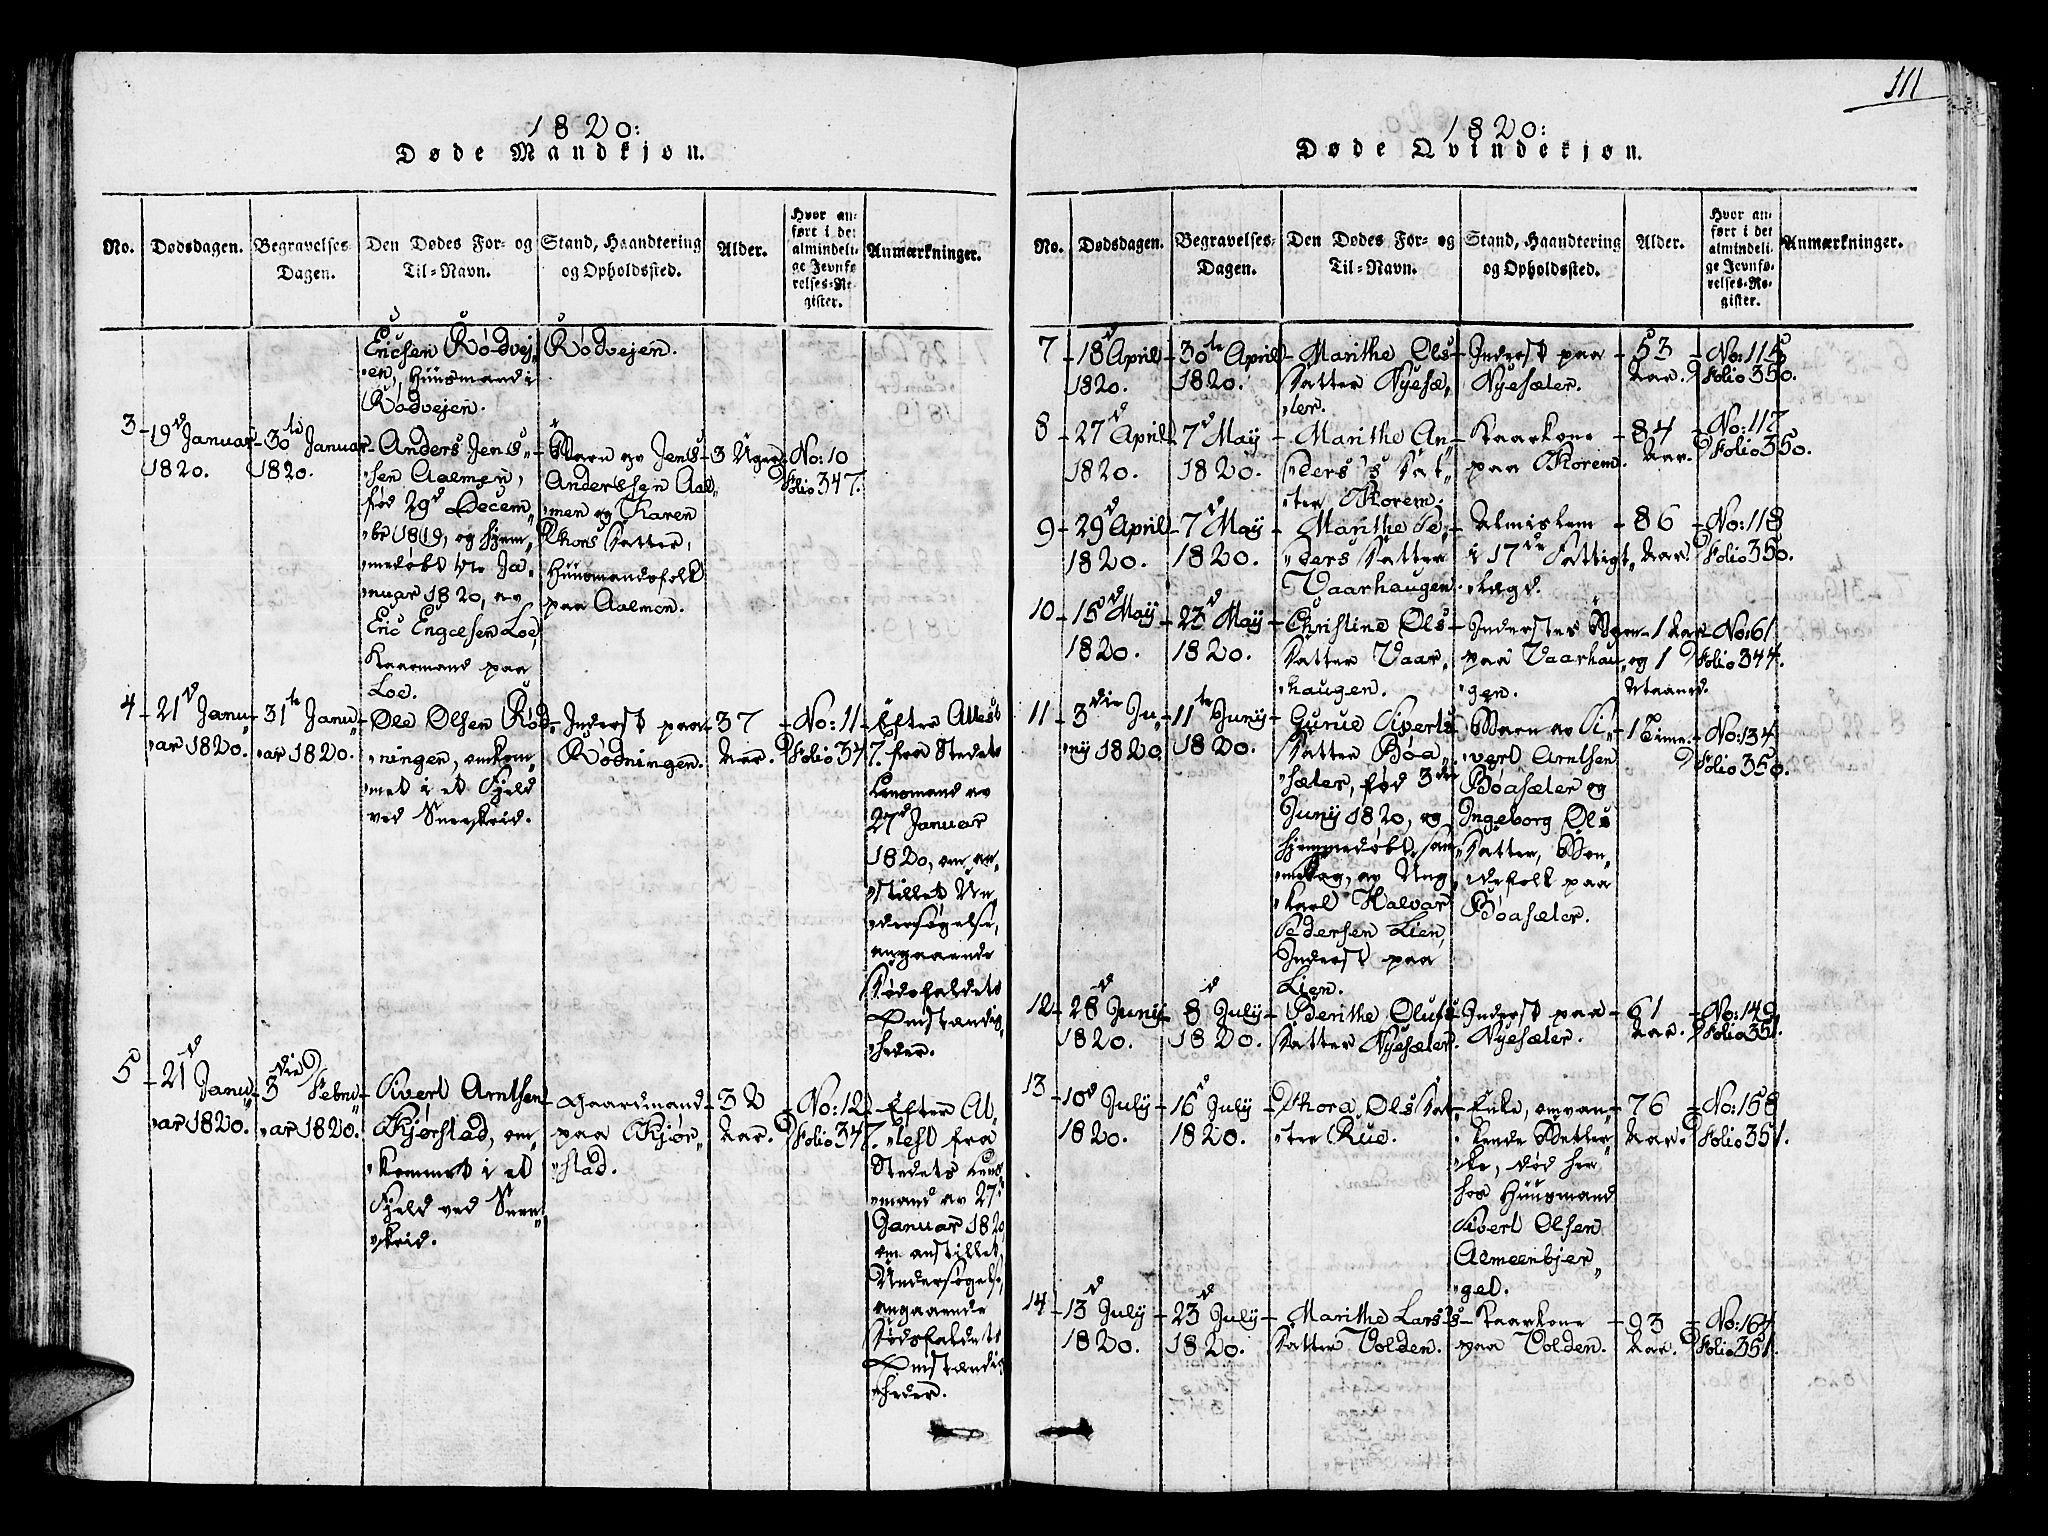 1820:
Døde Mandkjøn.
No.
Dødsdagen.
Begravelses-
Dagen.
Den Dødes For- og
Til-Navn.
Stand, Haandtering
og Opholdssted.
Alder.
Hvor an-
ført i det
almindeli-
ge Jevnfø-
relses-Re-
gister.
Anmærkninger.
Ericsen Rødvej„
„en, Huusmand i
Rødvejen.
Rødvejen.
3
19d Januar
1820.
30te Januar
1820.
Anders Jens„
„sen Aalmen,
fød 29d Decem„
„br 1819, og hjem„
„medøbt 1ste Ja„
„nuar 1820, av
Eric Engelsen Loe,
Kaarmand paa
Loe.
Barn av Jens
Anderssen Aal„
„men og Karen
Thors Datter,
Huusmandsfolk
paa Aalmen.
3 Uger
No: 10
Folio 347.
4
21d Janu„
„ar 1820.
31te Janu„
„ar 1820.
Ole Olsen Rød„
„ningen, omkom„
„met i et Fjeld
ved Sneeskrid.
Inderst paa
Rødningen.
37
Aar.
No: 11
Folio 347.
Efter Attest
fra Stedets
Lensmand av
27d Januar
1820, om an„
„stillet Un„
„dersøgelse,
angaaende
Dødsfaldets
Omstændig„
„heder.
5
21d Janu„
„ar 1820.
3die Febru„
„ar 1820.
Sivert Arntsen
Kjørstad, om„
„kommet i et
Fjeld ved Snee„
„skrid.
Gaardmand
paa Kjør„
„stad.
32
Aar.
No: 12
Folio 347.
Efter At„
„test fra
Stedets Lens„
„mand av 27d
Januar 1820
om anstillet
Undersøgelse,
angaaende
Dødsfaldets
Omstændig„
„heder.
111
1820:
Døde Qvindekjøn.
No.
Dødsdagen.
Begravelses-
Dagen.
Den Dødes For- og
Til-Navn.
Stand, Haandtering
og Opholdssted.
Alder.
Hvor an-
ført i det
almindeli-
ge Jevnfø-
relses-Re-
gister.
Anmærkninger.
7
18d April
1820.
30te April
1820.
Marithe Ols
Datter Nyesæ„
„ter.
Inderst paa
Nyesæter.
53
Aar.
No: 115
Folio 350.
8
27d April
1820.
7d Maÿ
1820.
Marithe An„
„ders's Dat„
„ter Korem.
Kaarkone
paa Korem.
84
Aar.
No: 117
Folio 350.
9
29d April
1820.
7d Maÿ
1820.
Marithe Pe„
„ders Datter
Vaarhaugen.
Almislem
i 17de Fattigt„
„lægd.
86
Aar.
No: 118
Folio 350.
10
15d Maÿ
1820.
23d Maÿ
1820.
Christine Ols
Datter Vaar„
„haugen.
Inderstes Barn
paa Vaarhau„
„gen.
1 Aar
og 1
Maaned.
No: 61
Folio 344.
11
3die Ju„
„nÿ 1820.
11te Junÿ
1820.
Gurue Siverts
Datter Bøa„
„sæter, fød 3die
Junÿ 1820, og
hjemmedøbt sam„
„me Dag, av Ung„
„karl Halvar
Pedersen Lien,
Inderst paa
Lien.
Barn av Si„
„vert Arntsen
Bøasæter og
Ingeborg Ols
Datter, Bøn„
„defolk paa
Bøasæter.
1 Time.
No: 134
Folio 350.
12
28d Junÿ
1820.
8d Julÿ
1820.
Berithe Olufs
Datter Nyesæter.
Inderst paa
Nyesæter.
61
Aar.
No: 149
Folio 351.
13
10d Julÿ
1820.
16d Julÿ
1820.
Thora Ols Dat„
„ter Rue.
Enke, omvan„
„kende Betler„
„ske, død her
hos Huusmand
Sivert Olsen
Almeenbjer„
„get.
76
Aar.
No: 158
Folio 351.
14
13d Julÿ
1820.
23d Julÿ
1820.
Marithe Lars's
Datter Volden.
Kaarkone
paa Volden.
93
Aar.
No: 164
Folio 351.